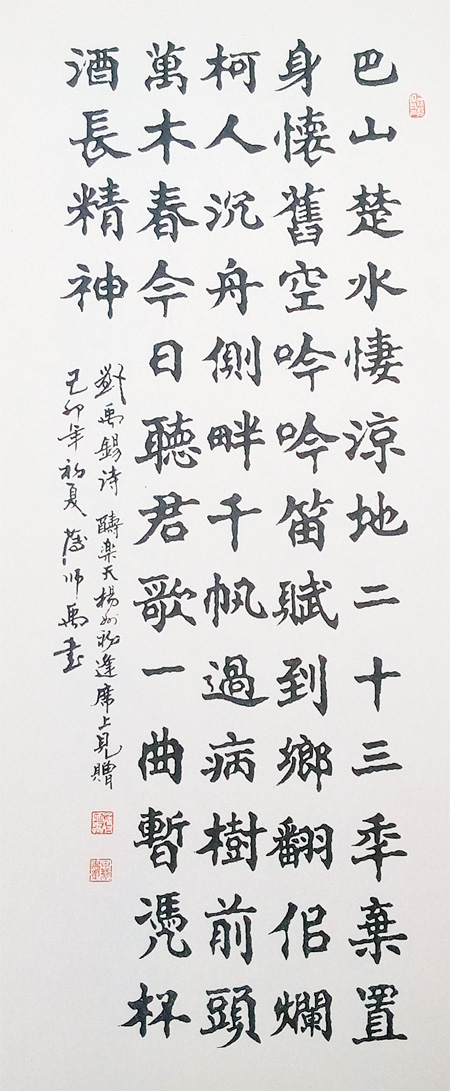 巴山楚水悽涼地二十三秊棄置
身懷舊空吟吟笛賦到鄉翻佀爛
柯人沉舟側畔千帆過病樹前頭
萬木春今日聽君歌一曲暫凴杯
酒長精神
劉禹錫诗 醻楽天楊州初逢席上見贈
己卯年初夏 师禹书